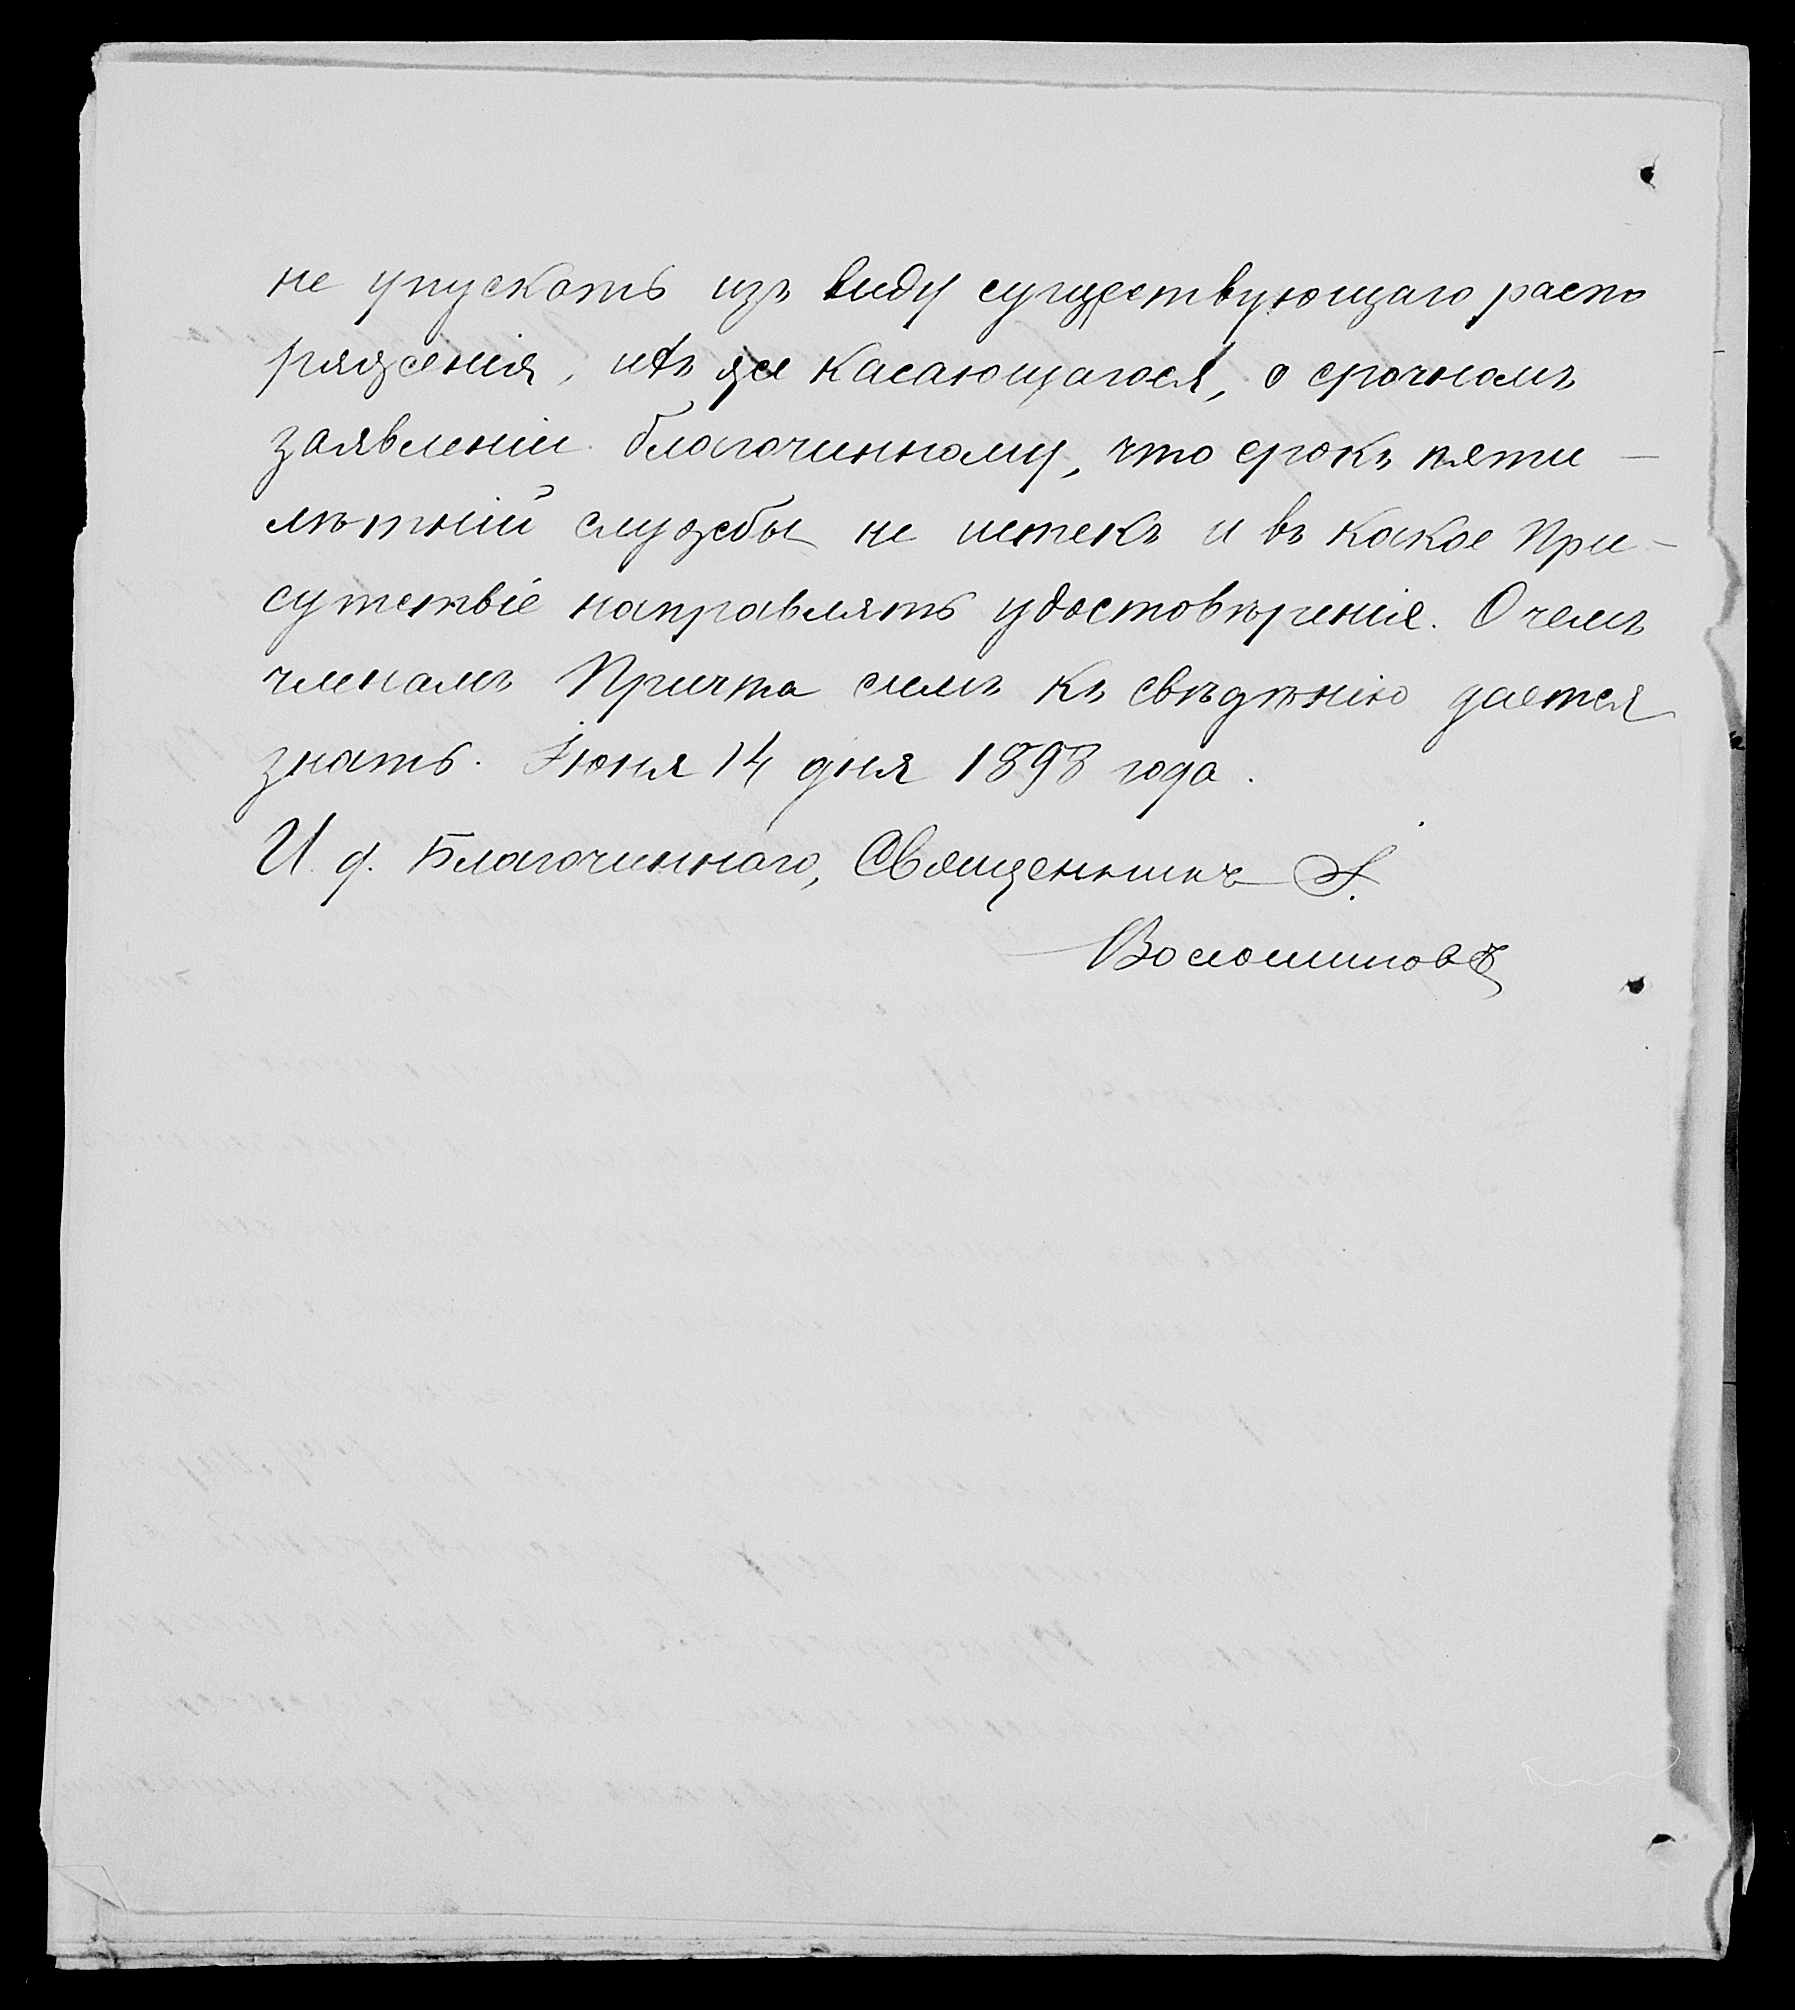 не упускать изъ виду существующаго распо
ряженія, ихъ же касающагося, о срочномъ
заявленіи благочинному, что срокъ пяти –
лѣтній службы не истекъ и въ какое При –
сутствіе направлять удостовѣреніе. О чемъ
членамъ Причта симъ къ свѣдѣнію дается
знать. Іюня 14 дня 1898 года.
И. д. Благочиннаго, Священникъ І.
Волошиновъ